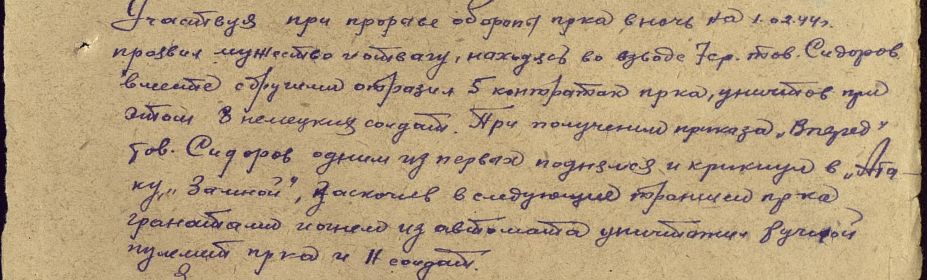 Участвуя при прорыве обороны пр-ка в ночь на 1.02.44 г.
проявил мужество и отвагу, находясь во взводе 7 ср. тов. Сидоров
вместе с другими отразил 5 контратак пр-ка, уничтожив при
этом 8 немецких солдат. При получении приказа „Вперед"
тов. Сидоров одним из первых поднялся и крикнул в „Ата-
ку", „За мной", заскочив в следующие траншеи пр-ка
гранатами и огнем из автомата уничтожил ручной
пулемет пр-ка и 11 солдат.